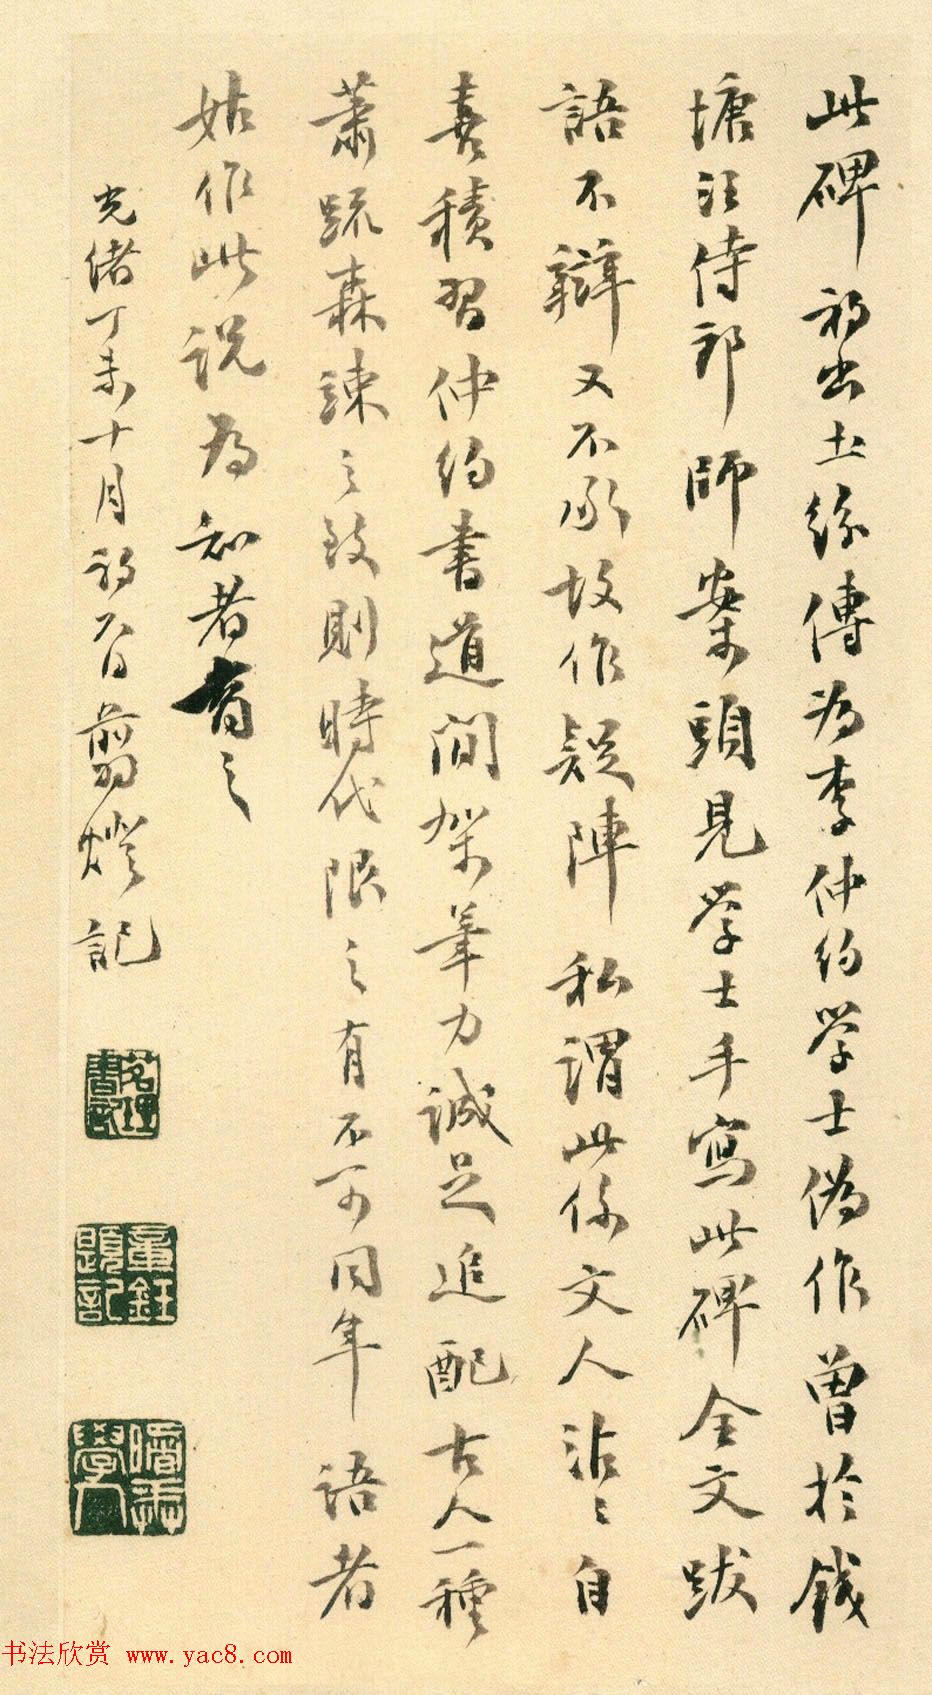 此碑初出土纷傳為李仲約學士偽作曾於錢
塘汪侍郎師案頭見学士手寫此碑全文跋
語不辯又不承故作疑陣私謂此係文人沾沾自
喜積習仲約書道間架筆力誠足追配古人一種
蕭疏森竦之致則時代限之有不可同年語者
姑作此説為知者道之
光緒丁未十月初六日翦燈記
茗理書記
章鈺題記
書法欣赏 www.yac8.com